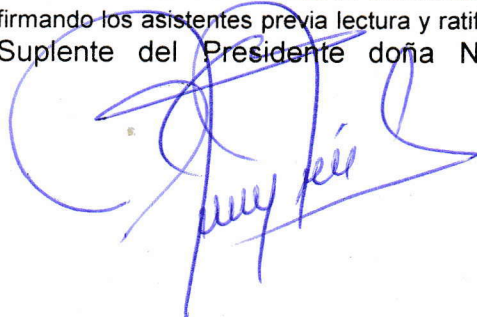 firmando los asistentes previa lectura y ratif
Suplente del Presidente doña N